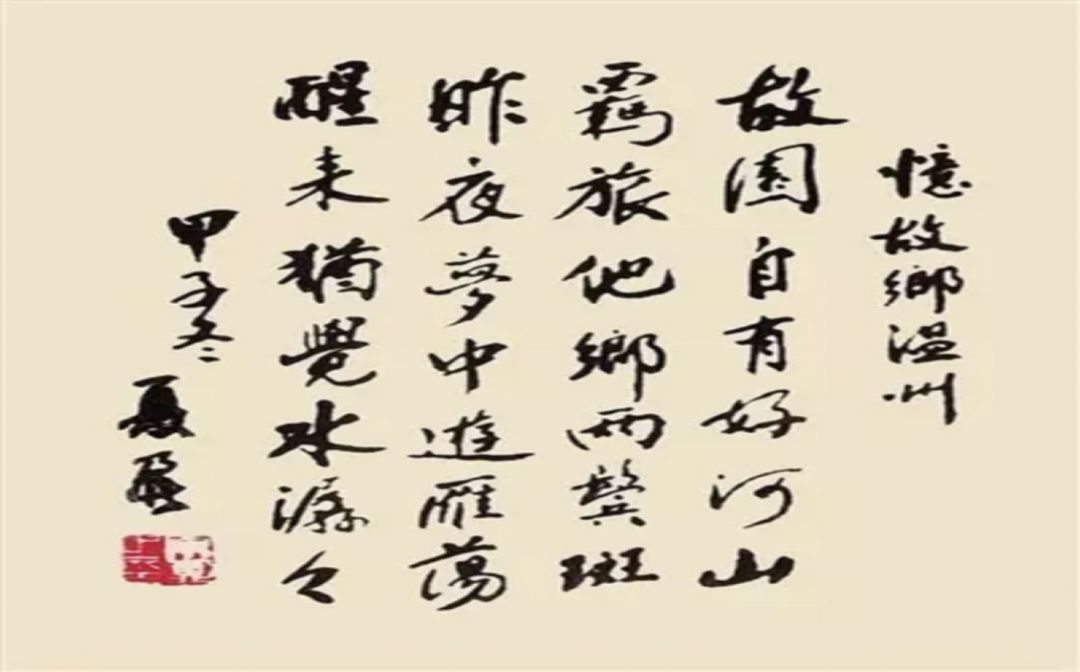 憶故鄉温州
故園自有好河山
羈旅他鄉兩鬢斑
昨夜夢中遊雁蕩
醒来猶覺水潺々
甲子冬
夏鼐